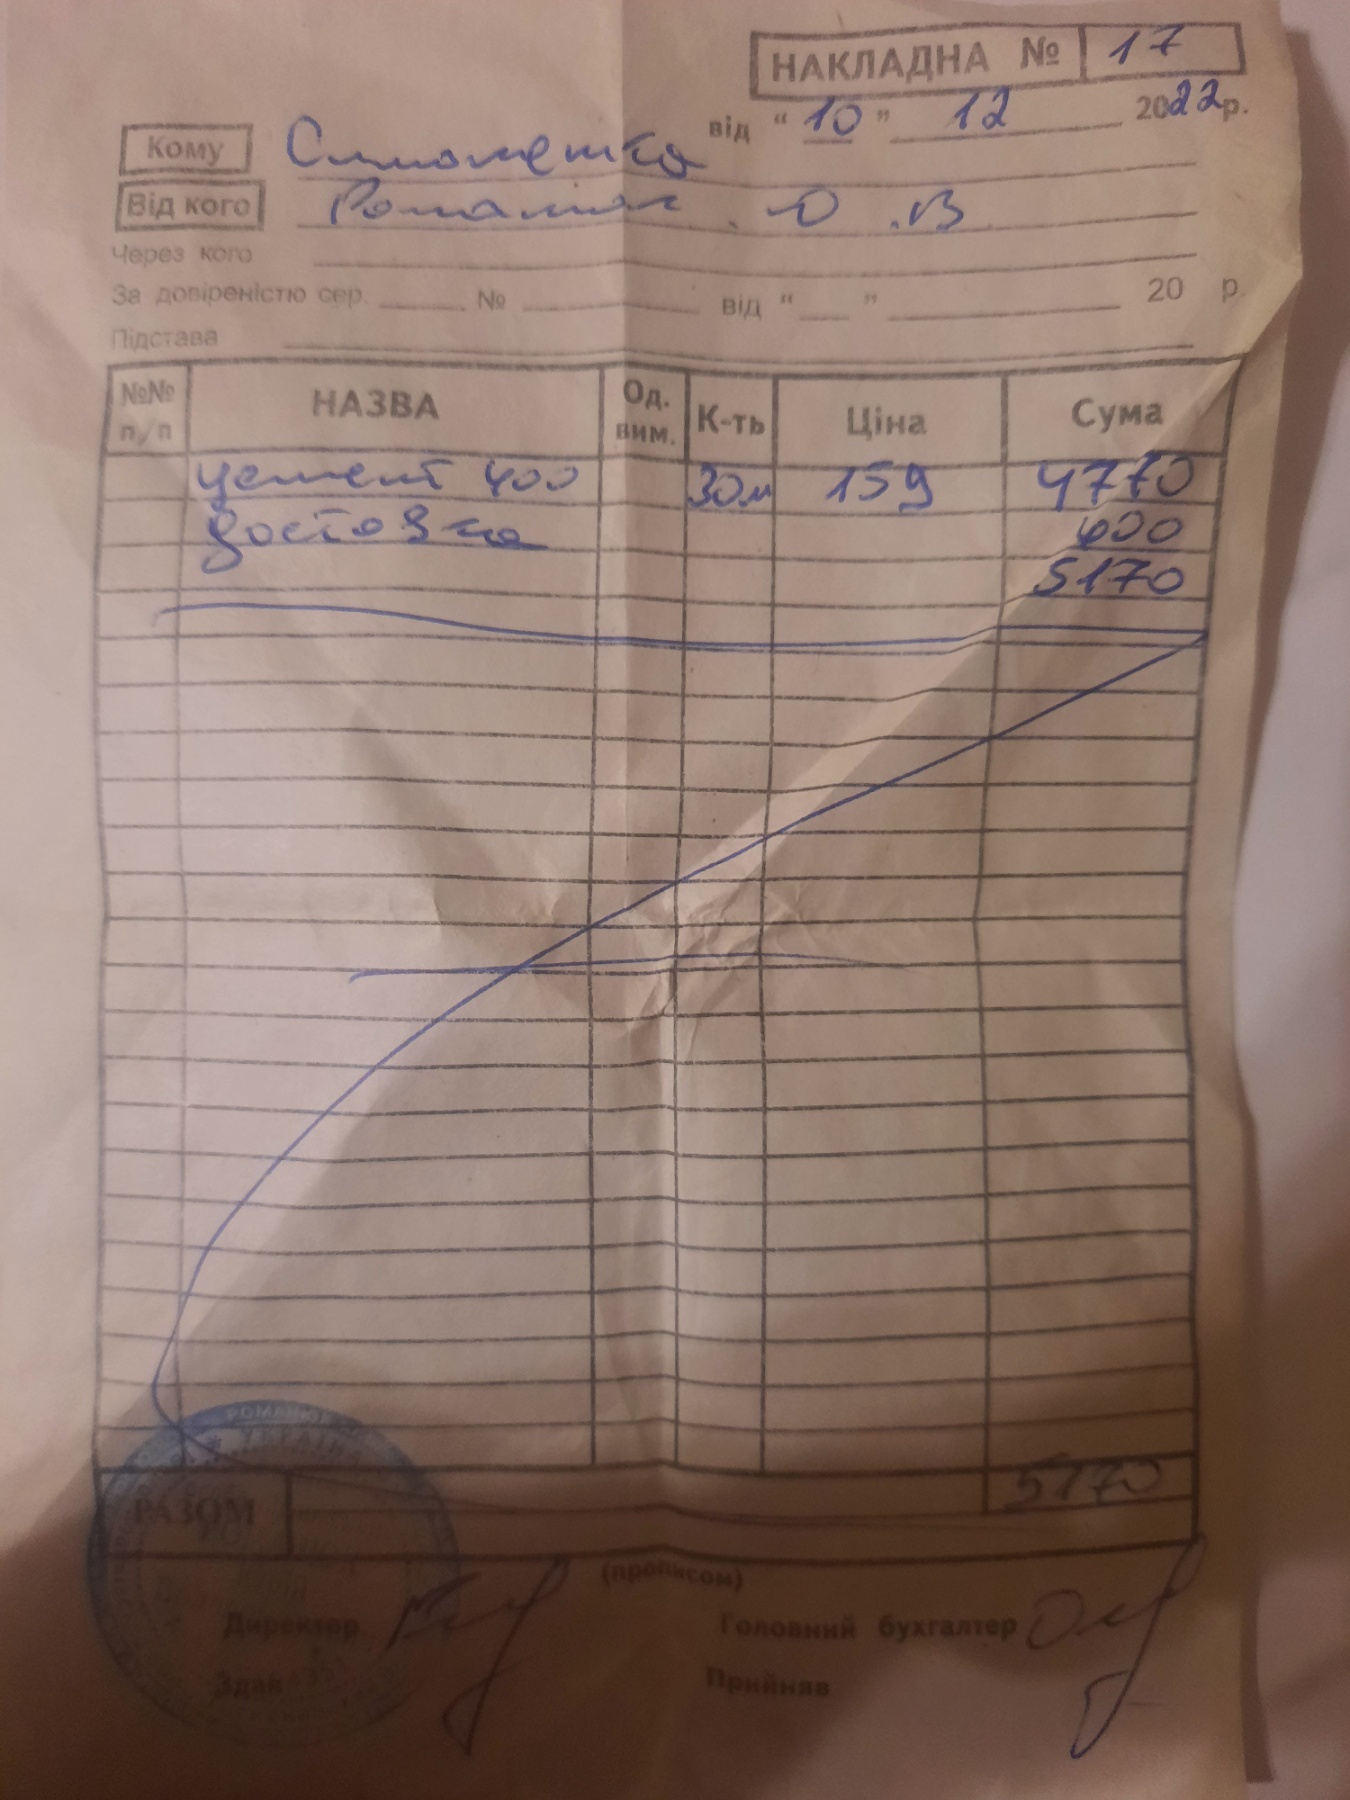 НАКЛАДНА № 17
від “ 10 ” 12 2022 р.
Кому
Від кого Романюк . О . В
Через кого
За довіреністю сер. № від “ ” 20 р.
Підстава
№№ п/п НАЗВА Од. вим. К-ть Ціна Сума
цемент 400 30м 159 4770
доставка 400
5170
5170
РОМАНЮК
УКРАЇНА
РАЗОМ
(прописом)
Директор Головний бухгалтер
Здав Прийняв